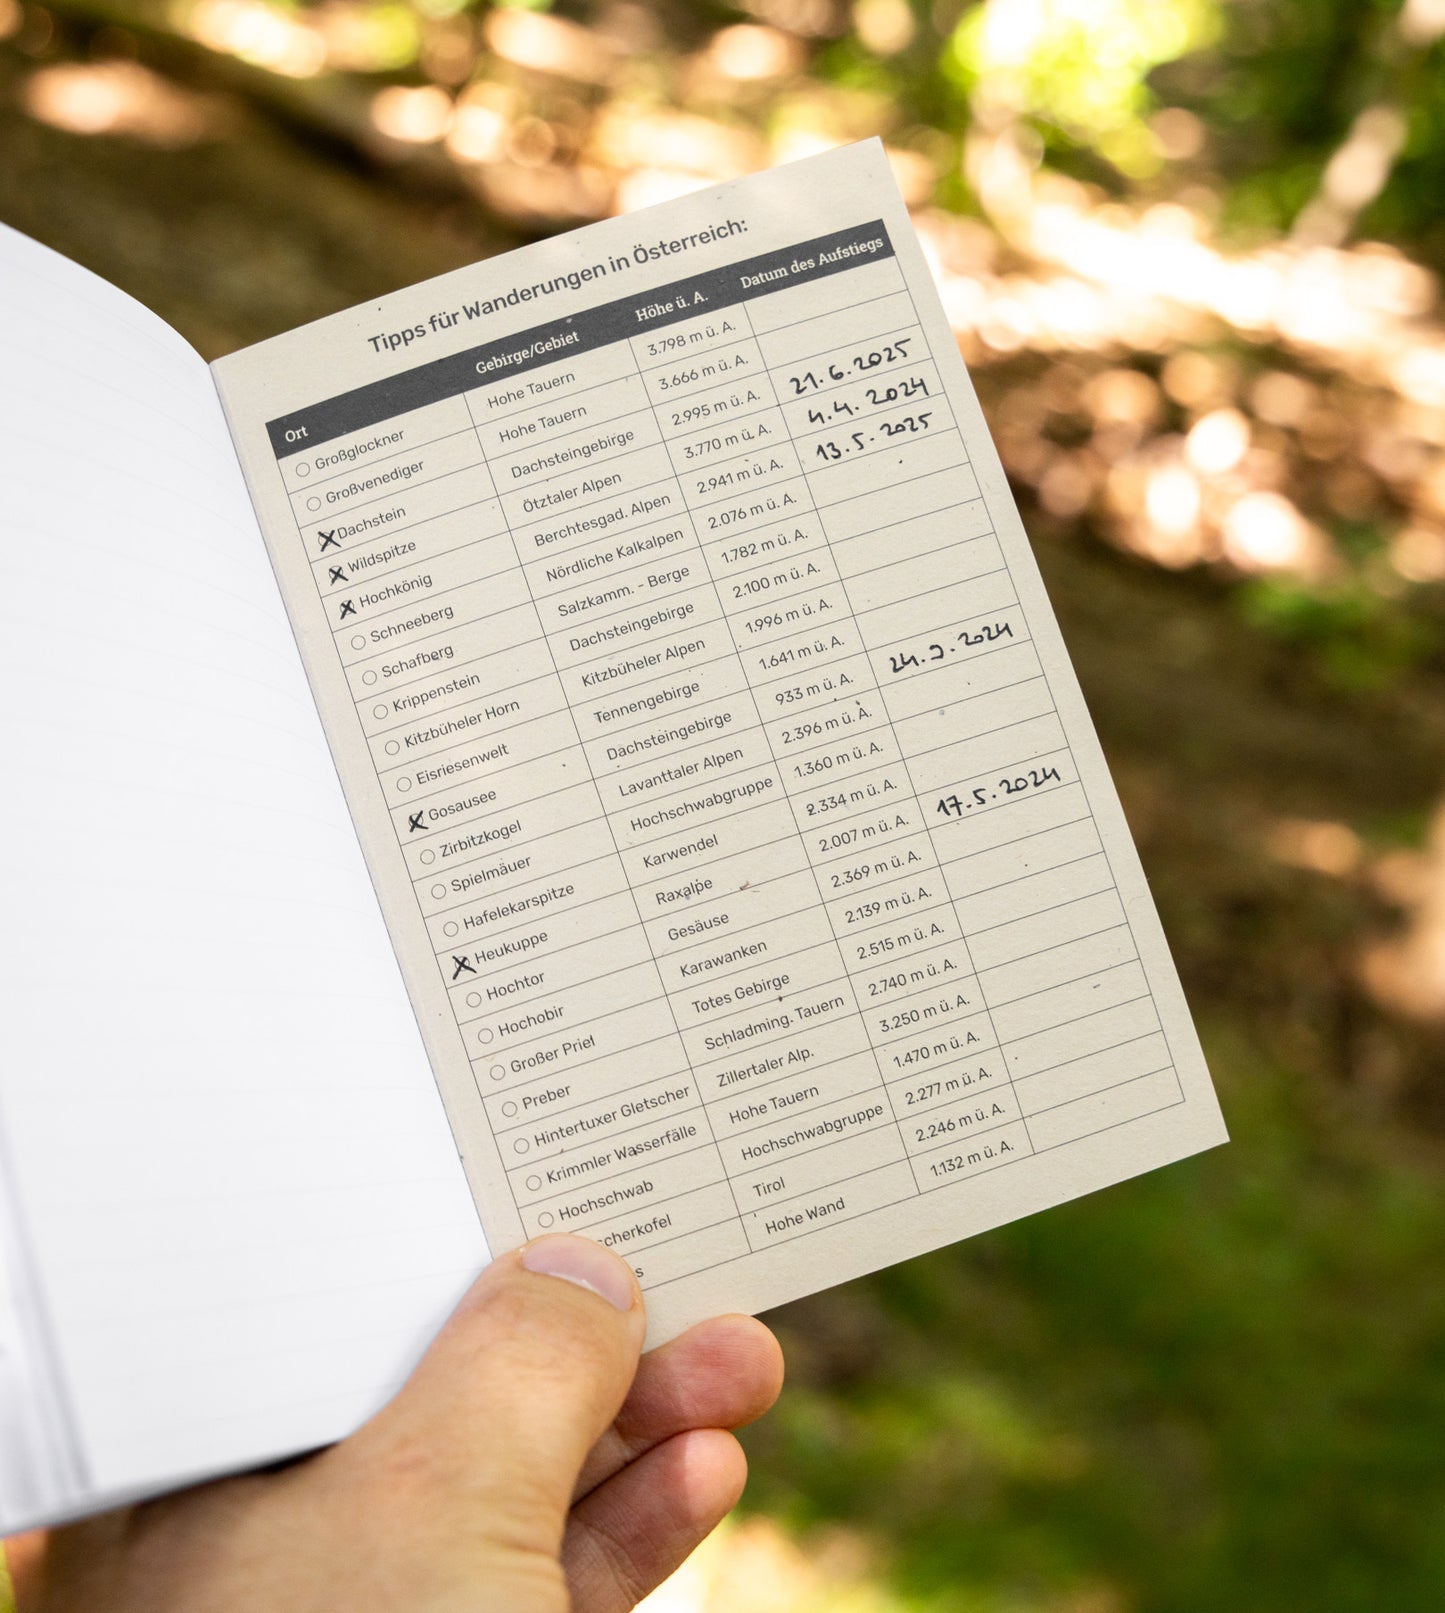 Tipps für Wanderungen in Österreich:
Ort Gebirge/Gebiet Höhe ü. A. Datum des Aufstiegs
Großglockner Hohe Tauern 3.798 m ü. A.
Großvenediger Hohe Tauern 3.666 m ü. A.
Dachstein Dachsteingebirge 2.995 m ü. A. 21.6.2025
Wildspitze Ötztaler Alpen 3.770 m ü. A. 4.4.2024
Hochkönig Berchtesgad. Alpen 2.941 m ü. A. 13.5.2025
Schneeberg Nördliche Kalkalpen 2.076 m ü. A.
Schafberg Salzkamm. - Berge 1.782 m ü. A.
Krippenstein Dachsteingebirge 2.100 m ü. A.
Kitzbüheler Horn Kitzbüheler Alpen 1.996 m ü. A.
Eisriesenwelt Tennengebirge 1.641 m ü. A.
Gosausee Dachsteingebirge 933 m ü. A. 24.9.2024
Zirbitzkogel Lavanttaler Alpen 2.396 m ü. A.
Spielmäuer Hochschwabgruppe 1.360 m ü. A.
Hafelekarspitze Karwendel 2.334 m ü. A.
Heukuppe Raxalpe 2.007 m ü. A. 17.5.2024
Hochtor Gesäuse 2.369 m ü. A.
Hochobir Karawanken 2.139 m ü. A.
Großer Priel Totes Gebirge 2.515 m ü. A.
Preber Schladming. Tauern 2.740 m ü. A.
Hintertuxer Gletscher Zillertaler Alp. 3.250 m ü. A.
Krimmler Wasserfälle Hohe Tauern 1.470 m ü. A.
Hochschwab Hochschwabgruppe 2.277 m ü. A.
cherkofel Tirol 2.246 m ü. A.
s Hohe Wand 1.132 m ü. A.